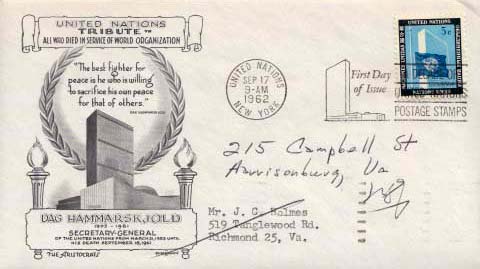 UNITED NATIONS
TRIBUTE TO
ALL WHO DIED IN SERVICE OF WORLD ORGANIZATION
"The best fighter for
peace is he who is willing
to sacrifice his own peace
for that of others."
DAG HAMMARSKJOLD
DAG HAMMARSKJOLD
1905 - 1961
SECRETARY-GENERAL
OF THE UNITED NATIONS FROM MARCH 31, 1953 UNTIL
HIS DEATH SEPTEMBER 18, 1961
THE ARISTOCRATS
UNITED NATIONS
SEP 17
9-AM
1962
NEW YORK
First Day
of Issue
UNITED NATIONS
5c
POSTAGE STAMPS
215 Campbell St
Harrisonburg, Va
Mr. J. C. Holmes
519 Tanglewood Rd.
Richmond 25, Va.